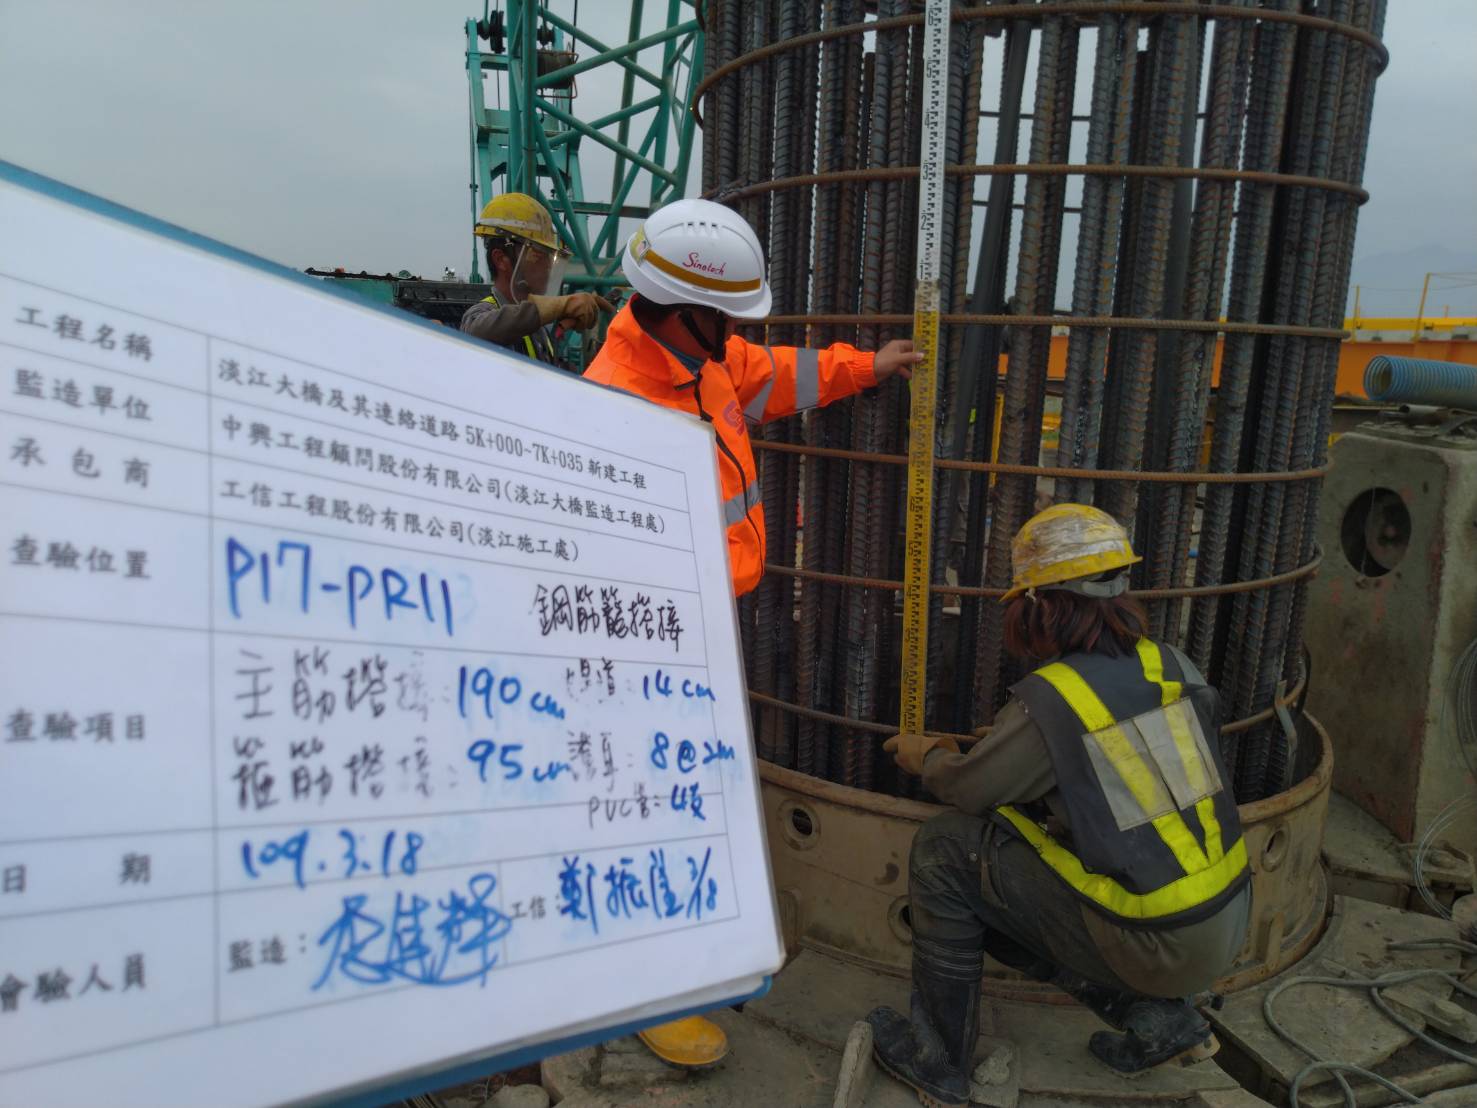 工程名稱 淡江大橋及其連絡道路 5K+000~7K+035 新建工程
監造單位 中興工程顧問股份有限公司(淡江大橋監造工程處)
承包商 工信工程股份有限公司(淡江施工處)
查驗位置 P17-PR11 鋼筋籠搭接
查驗項目 主筋搭接:190cm 焊道:14cm
箍筋搭接:95cm 護耳:8@2m
PVC管:4支
日期 109.3.18
會驗人員 監造: 工信:鄭振隆 3/18
Sinotech